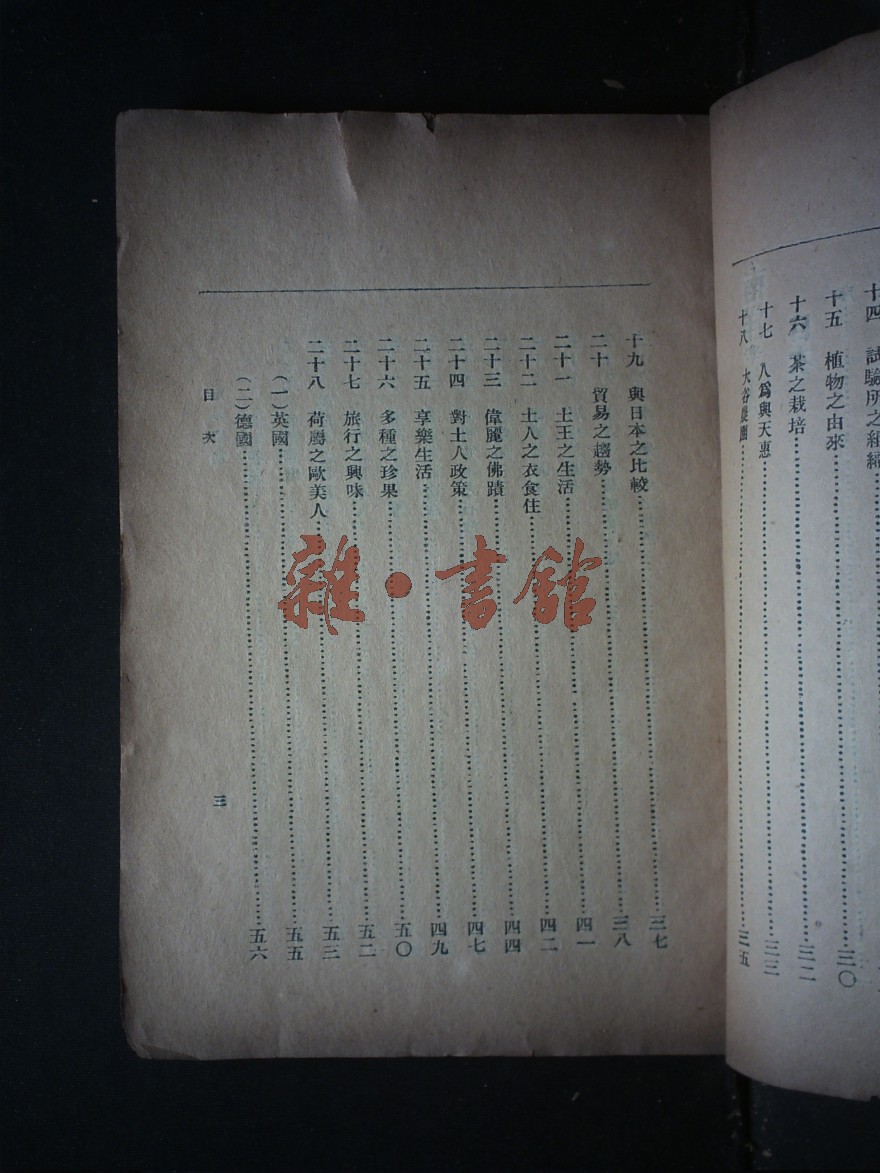 十四　試驗所之
十五　植物之由來……三〇
十六　茶之栽培……三二
十七　人爲與天惠……三三
十八　大谷農園……三五
十九　與日本之比較……三七
二十　貿易之趨勢……三八
二十一　土王之生活……四一
二十二　土人之衣食住……四二
二十三　偉麗之佛蹟……四四
二十四　對土人政策……四七
二十五　享樂生活……四九
二十六　多種之珍果……五〇
二十七　旅行之興味……五二
二十八　荷屬之歐美人……五三
（一）英國……五五
（二）德國……五六
目次
三
雜·書館